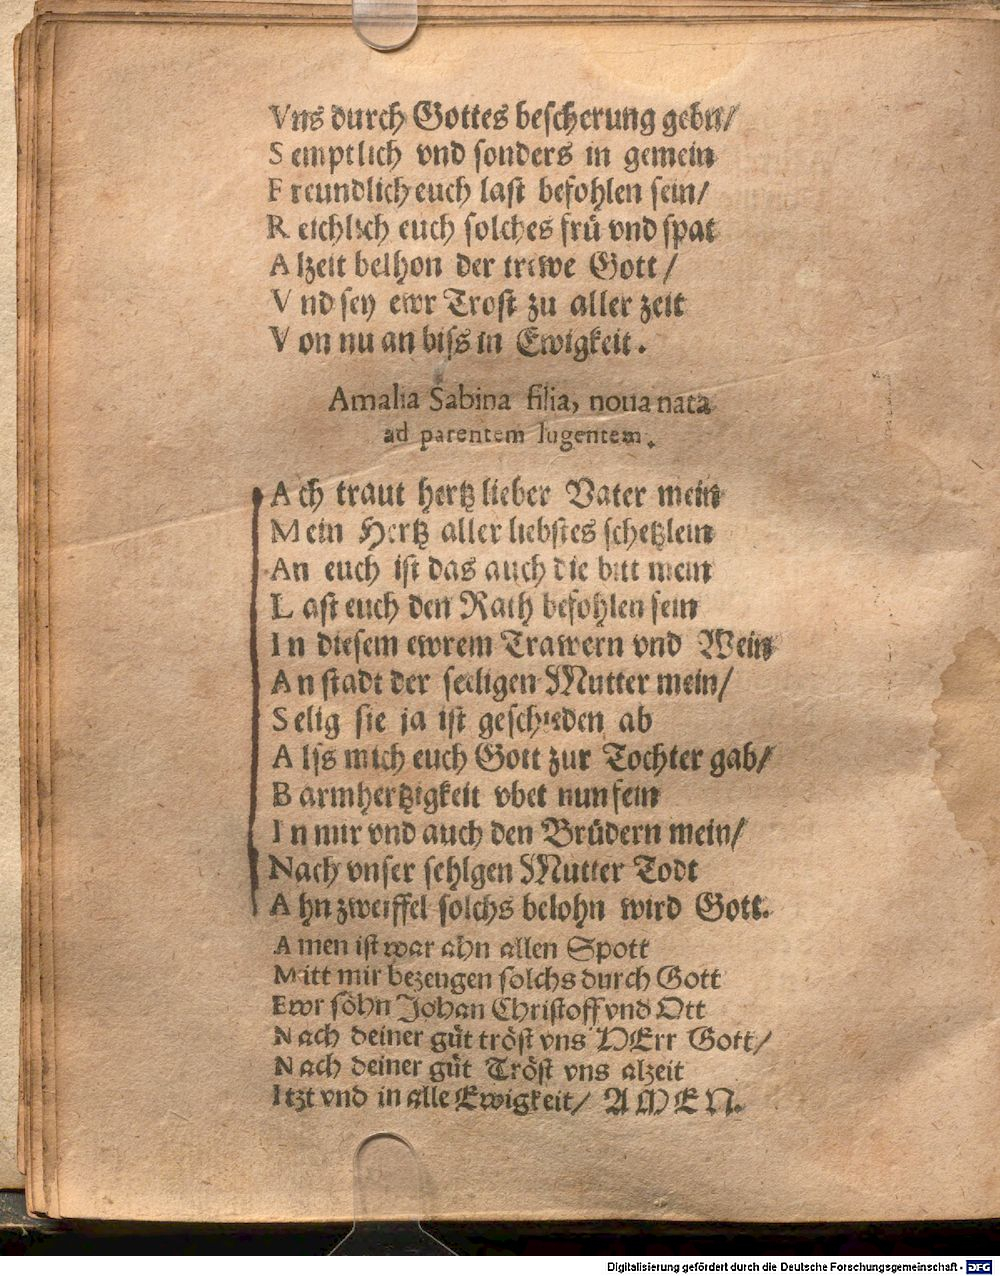 Vns durch Gottes bescherung gebn/
Semptlich vnd sonders in gemein
Freundlich euch last befohlen sein/
Reichlich euch solches frü vnd spat
Alzeit belhon der trewe Gott/
Vnd sey ewr Trost zu aller zeit
Von nu an biss in Ewigkeit.
Amalia Sabina filia, noua nata
ad parentem lugentem.
Ach traut hertz lieber Vater mein
Mein Hertz aller liebstes schetzlein
An euch ist das auch die bitt mein
Last euch den Rath befohlen sein
In diesem ewrem Trawern vnd Wein
An stadt der seeligen Mutter mein/
Selig sie ja ist geschieden ab
Alss mich euch Gott zur Tochter gab/
Barmhertzigkeit vbet nun fein
In mir vnd auch den Brüdern mein/
Nach vnser sehlgen Mutter Todt
Ahn zweiffel solchs belohn wird Gott.
Amen ist war ahn allen Spott
Mitt mir bezeugen solchs durch Gott
Ewr söhn Johan Christoff vnd Ott
Nach deiner güt tröst vns HErr Gott/
Nach deiner güt Tröst vns alzeit
Itzt vnd in alle Ewigkeit/ AMEN.
Digitalisierung gefördert durch die Deutsche Forschungsgemeinschaft - DFG